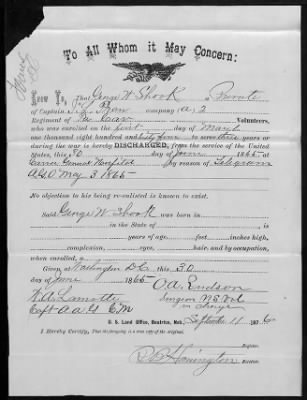 To All Whom it May Concern:
Know Ye, That George W Shook a Private
of Captain company (A) 2
Regiment of Pa Cav Volunteers,
who was enrolled on the first day of March
one thousand eight hundred and Sixty four to serve three years or
during the war is hereby DISCHARGED, from the service of the United
States, this 30 day of June 1865, at
General Hospital by reason of Telegram
A.G.O May 3 1865
No objection to his being re-enlisted is known to exist.
Said George W Shook was born in
in the State of
years of age, feet inches high,
complexion, eyes, hair, and by occupation,
when enrolled, a
Given at Washington D.C. this 30
day of June 1865
Surgeon U.S. Vol
in charge
Capt A.A.G.
U. S. Land Office, Beatrice, Neb., September 11 1876
I hereby Certify, That the above is a true
Register.
Receiver.